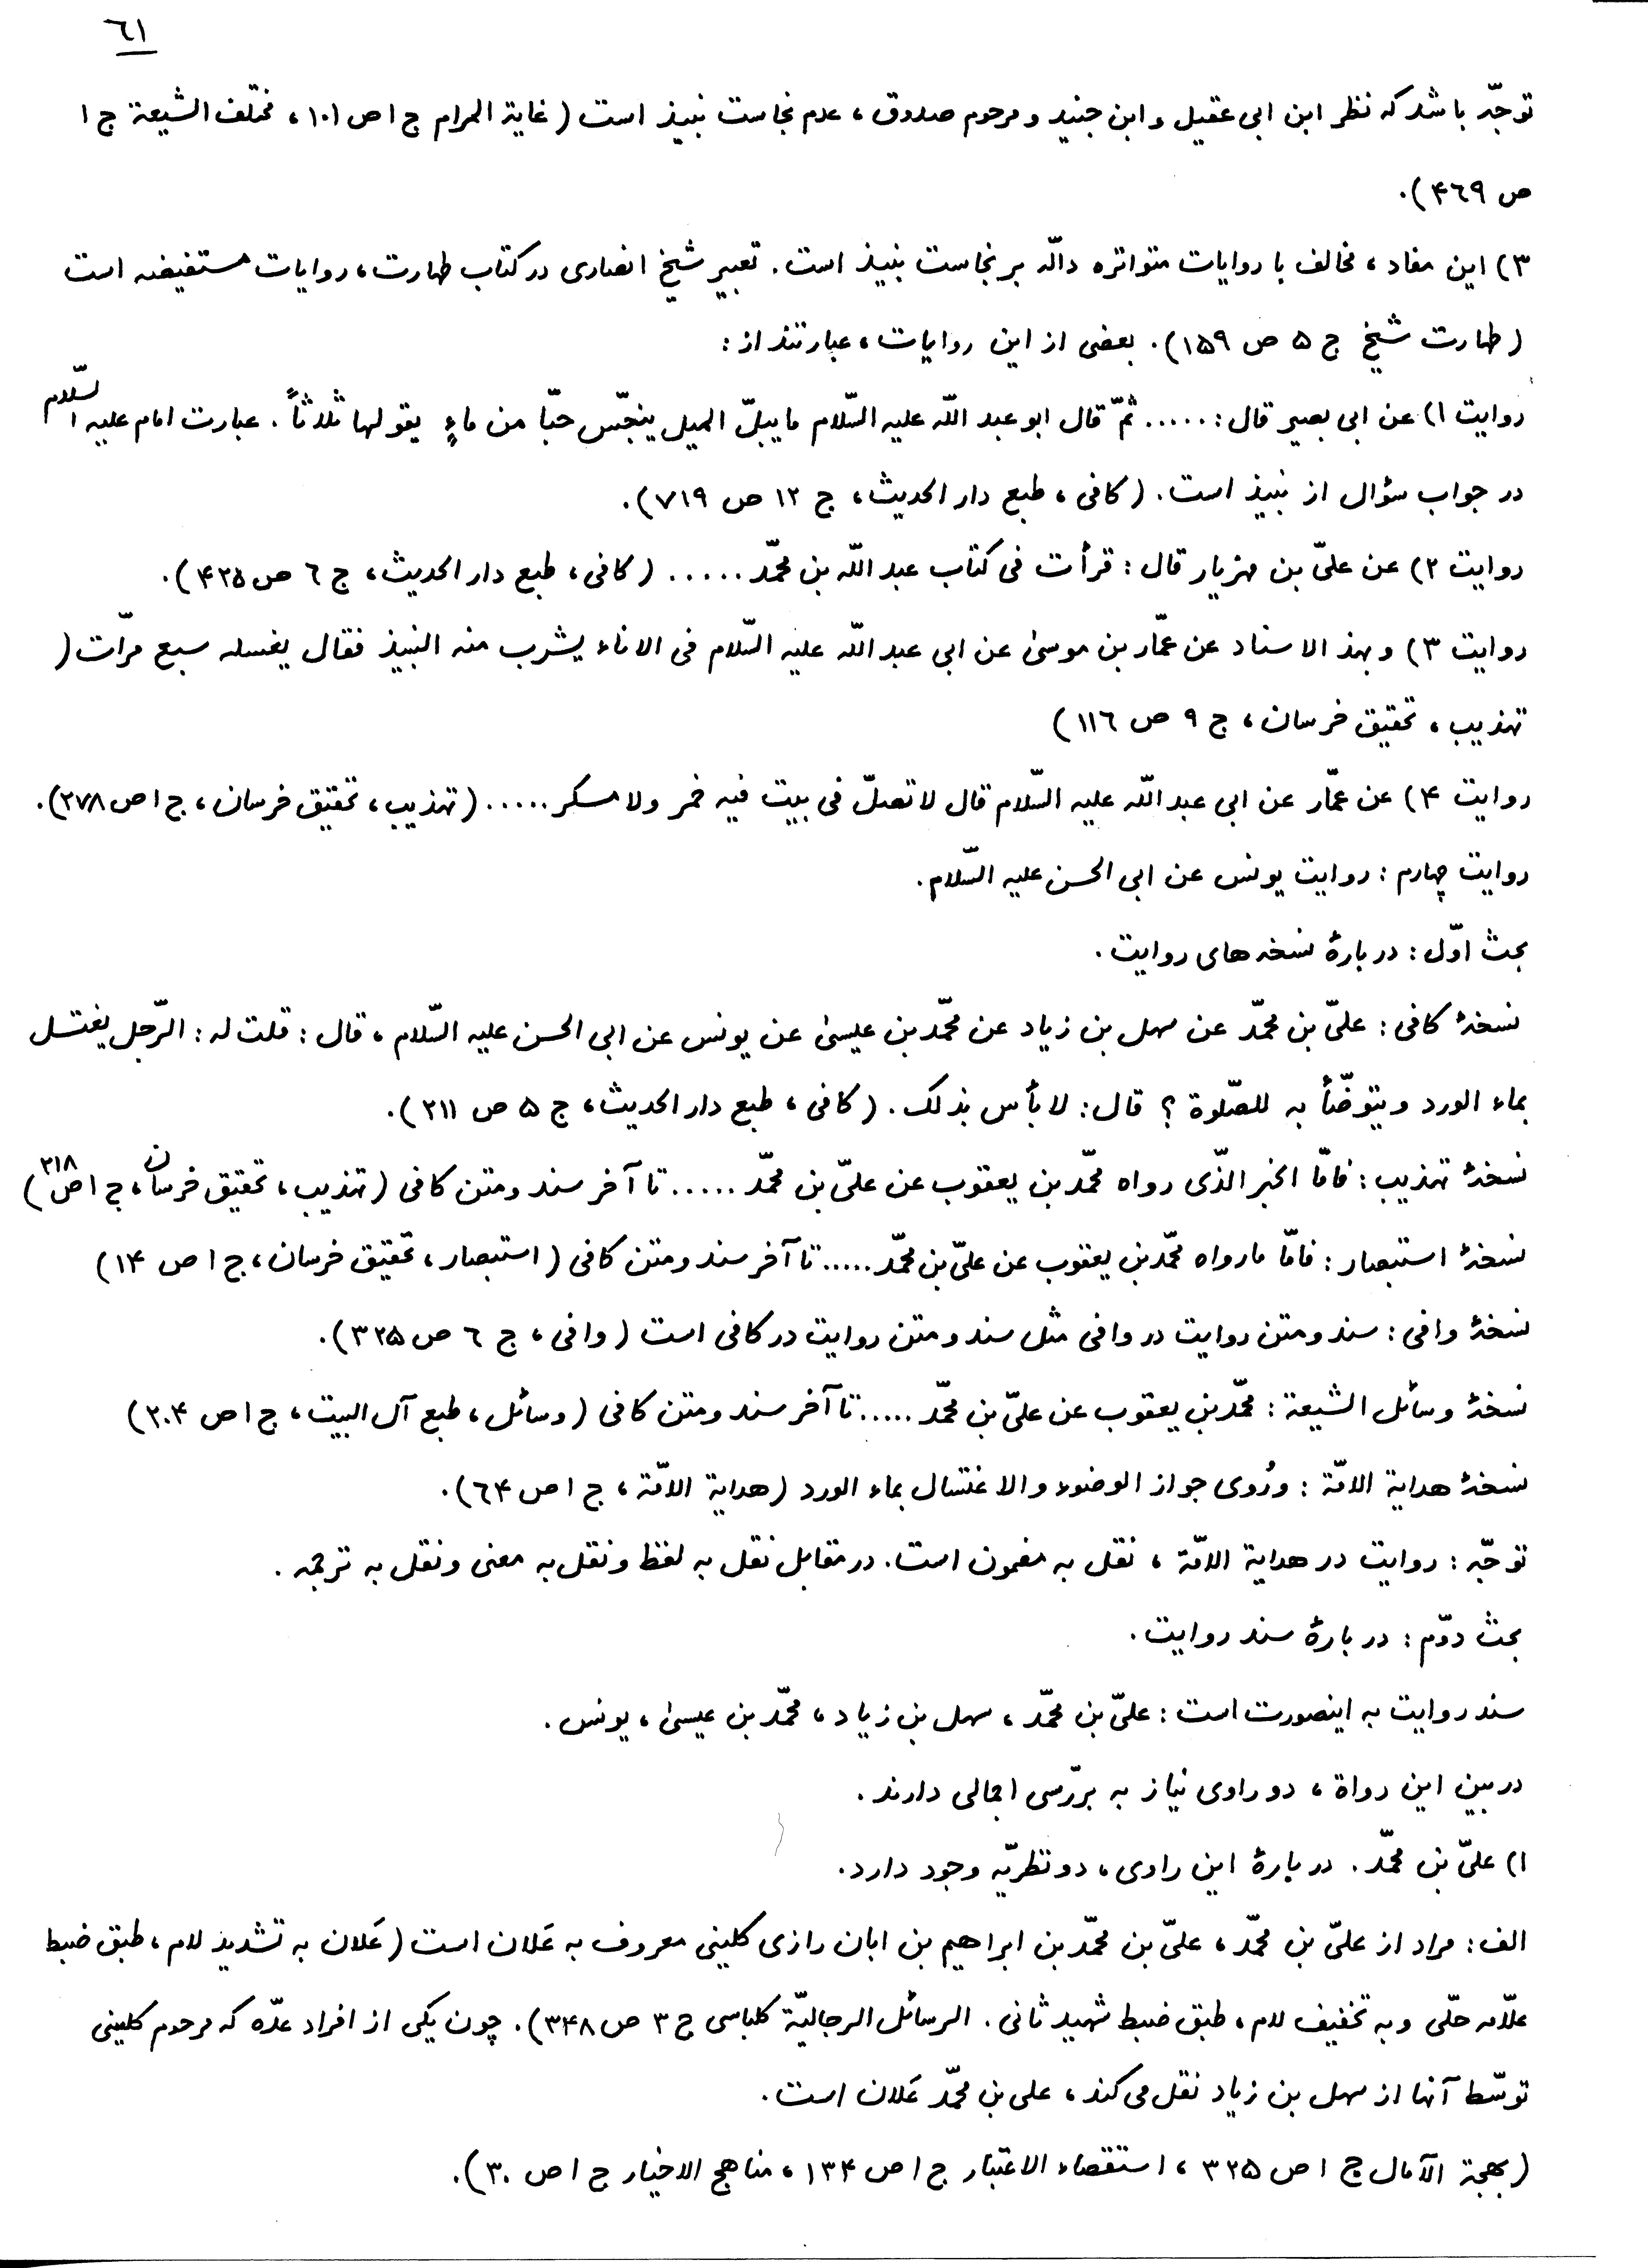 ٦١
توجّه باشد که نظر ابن ابی عقیل و ابن جنید و مرحوم صدوق، عدم نجاست نبیذ است (غایة المرام ج ١ ص ١٠١، مختلف الشیعة ج ١
ص ۴٦٩).
٣) این مفاد، مخالف با روایات متواتره دالّه بر نجاست نبیذ است. تعبیر شیخ انصاری در کتاب طهارت، روایات مستفیضه است
(طهارت شیخ ج ۵ ص ١۵٩). بعضی از این روایات، عبارتند از:
روایت ١) عن ابی بصیر قال: ..... ثمّ قال ابو عبد اللّه علیه السّلام ما یبلّ المیل ینجّس حبّا من ماءٍ یقولها ثلاثاً. عبارت امام علیه السّلام
در جواب سؤال از نبیذ است. (کافی، طبع دار الحدیث، ج ١٢ ص ٧١٩).
روایت ٢) عن علیّ بن مهزیار قال: قرأت فی کتاب عبد اللّه بن محمّد ..... (کافی، طبع دار الحدیث، ج ٦ ص ۴٢۵).
روایت ٣) و بهذ الاسناد عن عمّار بن موسیٰ عن ابی عبد اللّه علیه السّلام فی الاناء یشرب منه النبیذ فقال یغسله سبع مرّات (
تهذیب، تحقیق خرسان، ج ٩ ص ١١٦)
روایت ۴) عن عمّار عن ابی عبد اللّه علیه السّلام قال لا تصلّ فی بیت فیه خمر ولا مسکر ..... (تهذیب، تحقیق خرسان، ج ١ ص ٢٧٨).
روایت چهارم: روایت یونس عن ابی الحسن علیه السّلام.
بحث اوّل: دربارۀ نسخه های روایت.
نسخۀ کافی: علیّ بن محمّد عن سهل بن زیاد عن محمّد بن عیسیٰ عن یونس عن ابی الحسن علیه السّلام، قال: قلت له: الرّجل یغتسل
بماء الورد و یتوضّأ به للصّلوة؟ قال: لا بأس بذلک. (کافی، طبع دار الحدیث، ج ۵ ص ٢١١).
نسخۀ تهذیب: فامّا الخبر الّذی رواه محمّد بن یعقوب عن علیّ بن محمّد ..... تا آخر سند و متن کافی (تهذیب، تحقیق خرسان، ج ١ ص ٢١٨)
نسخۀ استبصار: فامّا ما رواه محمّد بن یعقوب عن علیّ بن محمّد ..... تا آخر سند و متن کافی (استبصار، تحقیق خرسان، ج ١ ص ١۴)
نسخۀ وافی: سند و متن روایت در وافی مثل سند و متن روایت در کافی است (وافی، ج ٦ ص ٣٢۵).
نسخۀ وسائل الشیعة: محمّد بن یعقوب عن علیّ بن محمّد ..... تا آخر سند و متن کافی (وسائل، طبع آل البیت، ج ١ ص ٢٠۴)
نسخۀ هدایة الامّة: ورُوی جواز الوضوء والاغتسال بماء الورد (هدایة الامّة، ج ١ ص ٦۴).
توجّه: روایت در هدایة الامّة، نقل به مضمون است. در مقابل نقل به لفظ و نقل به معنی و نقل به ترجمه.
بحث دوّم: دربارۀ سند روایت.
سند روایت به اینصورت است: علیّ بن محمّد، سهل بن زیاد، محمّد بن عیسیٰ، یونس.
در بین این رواة، دو راوی نیاز به بررّسی اجمالی دارند.
١) علیّ بن محمّد. دربارۀ این راوی، دو نظریّه وجود دارد.
الف: مراد از علیّ بن محمّد، علیّ بن محمّد بن ابراهیم بن ابان رازی کلینی معروف به عَلان است (عَلان به تشدید لام، طبق ضبط
علّامه حلّی و به تخفیف لام، طبق ضبط شهید ثانی. الرسائل الرجالیّة کلباسی ج ٣ ص ٣۴٨). چون یکی از افراد عدّه که مرحوم کلینی
توسّط آنها از سهل بن زیاد نقل می کند، علی بن محمّد عَلان است.
(بهجة الآمال ج ١ ص ٣٢۵، استقصاء الاعتبار ج ١ ص ١٣۴، مناهج الاخیار ج ١ ص ٣٠).